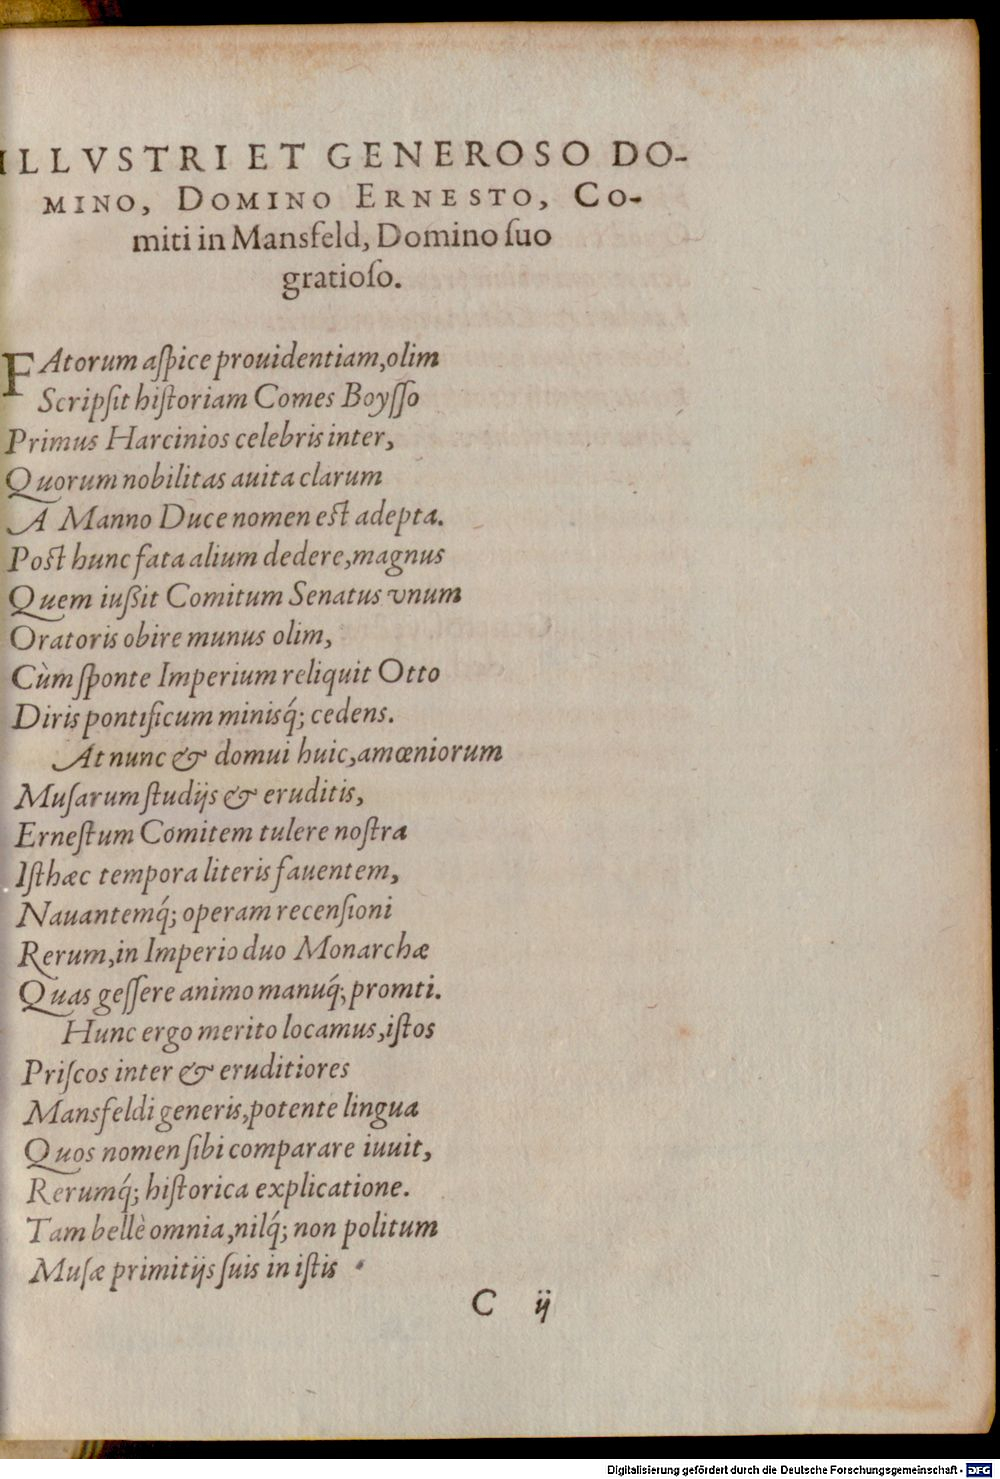 ILLVSTRI ET GENEROSO DO-
MINO, DOMINO ERNESTO, CO-
miti in Mansfeld, Domino ſuo
gratioſo.
FAtorum aſpice prouidentiam, olim
Scripſit hiſtoriam Comes Boyſſo
Primus Harcinios celebris inter,
Quorum nobilitas auita clarum
A Manno Duce nomen eſt adepta.
Poſt hunc fata alium dedere, magnus
Quem iußit Comitum Senatus vnum
Oratoris obire munus olim,
Cùm ſponte Imperium reliquit Otto
Diris pontificum minisq́; cedens.
At nunc & domui huic, amœniorum
Muſarum ſtudijs & eruditis,
Erneſtum Comitem tulere noſtra
Iſthæc tempora literis fauentem,
Nauantemq́; operam recenſioni
Rerum, in Imperio duo Monarchæ
Quas geſſere animo manuq́; promti.
Hunc ergo merito locamus, iſtos
Priſcos inter & eruditiores
Mansfeldi generis, potente lingua
Quos nomen ſibi comparare iuuit,
Rerumq́; hiſtorica explicatione.
Tam bellè omnia, nilq́; non politum
Muſæ primitijs ſuis in iſtis
C ij
Digitalisierung gefördert durch die Deutsche Forschungsgemeinschaft - DFG